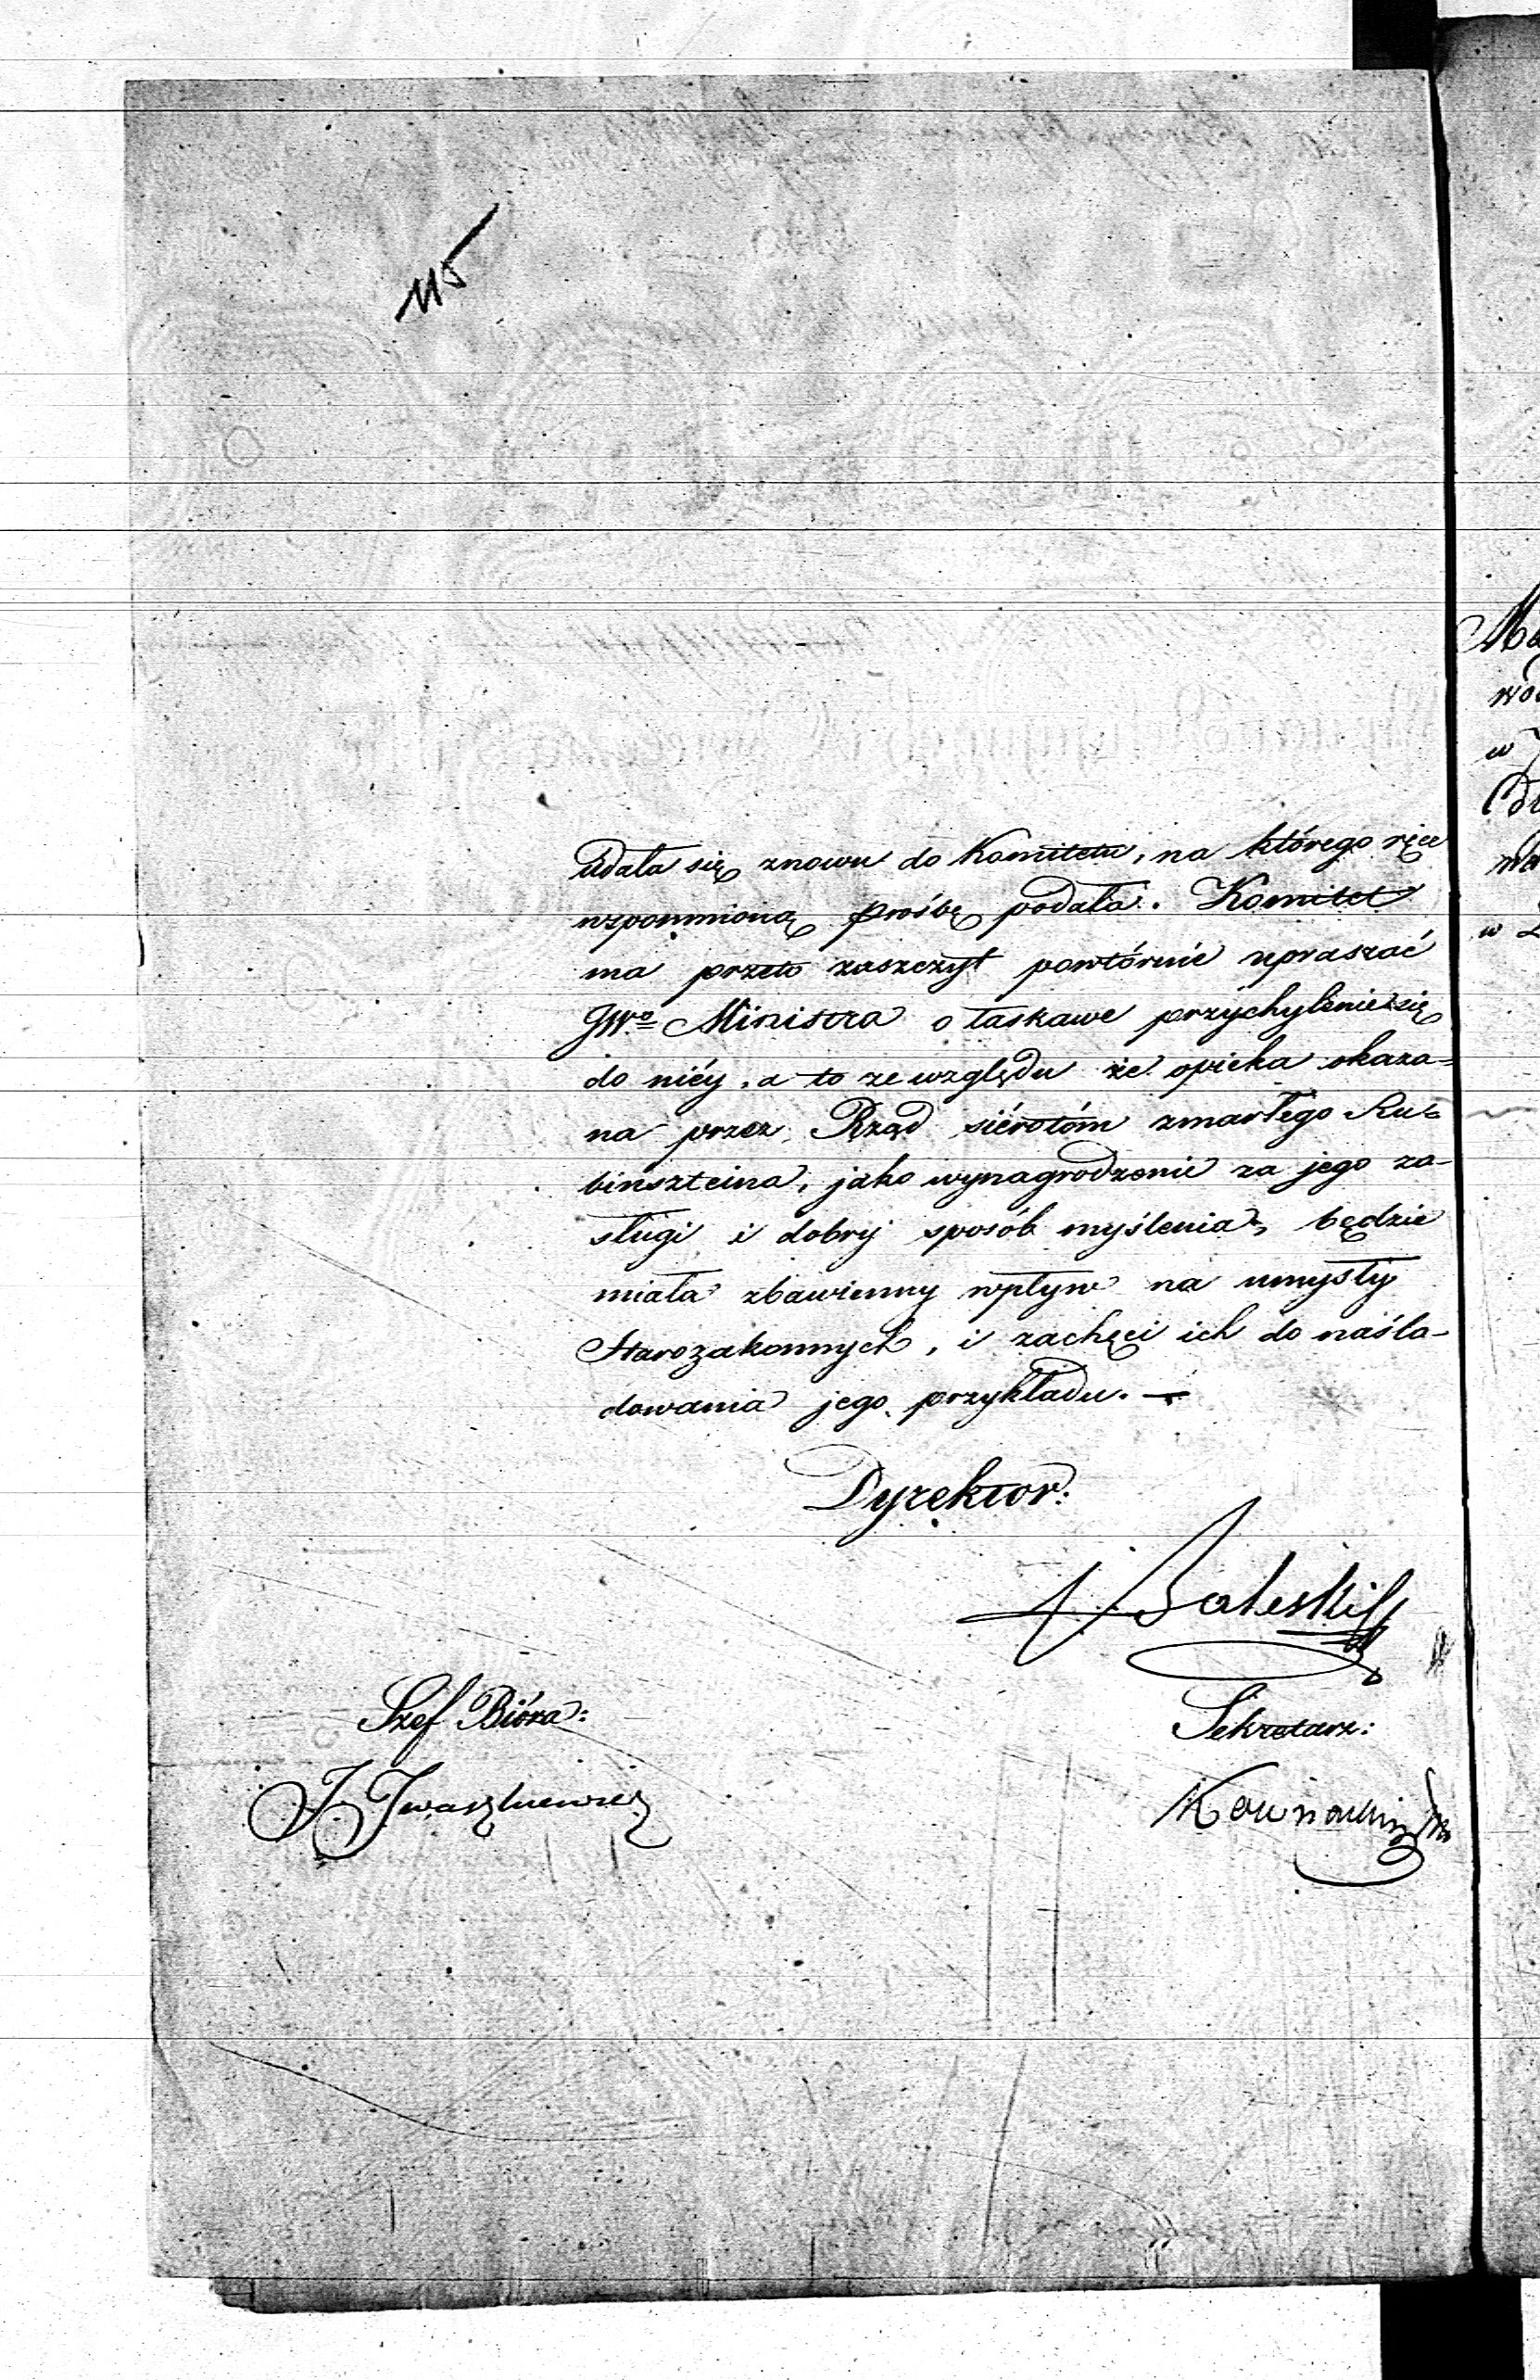 115
udała się znowu do Komitetu, na którego ręce
wzpomnioną prośbę podała. Komitet
ma przeto zaszczyt powtórnie upraszać
JWo Ministra o łaskawe przychylenie się
do niéy, a to ze względu że opieka okaza=
na przez Rząd siérotóm zmarłego Ru=
binszteina, jako wynagrodzenie za jego za-
sługi i dobry sposób myślenia, będzie
miała zbawienny wpływ na umysły
Starozakonnych, i zachęci ich do naśla-
dowania jego przykładu. —
Dyrektor:
Szef Bióra:
Sekretarz:
J Jwaszkiewicz